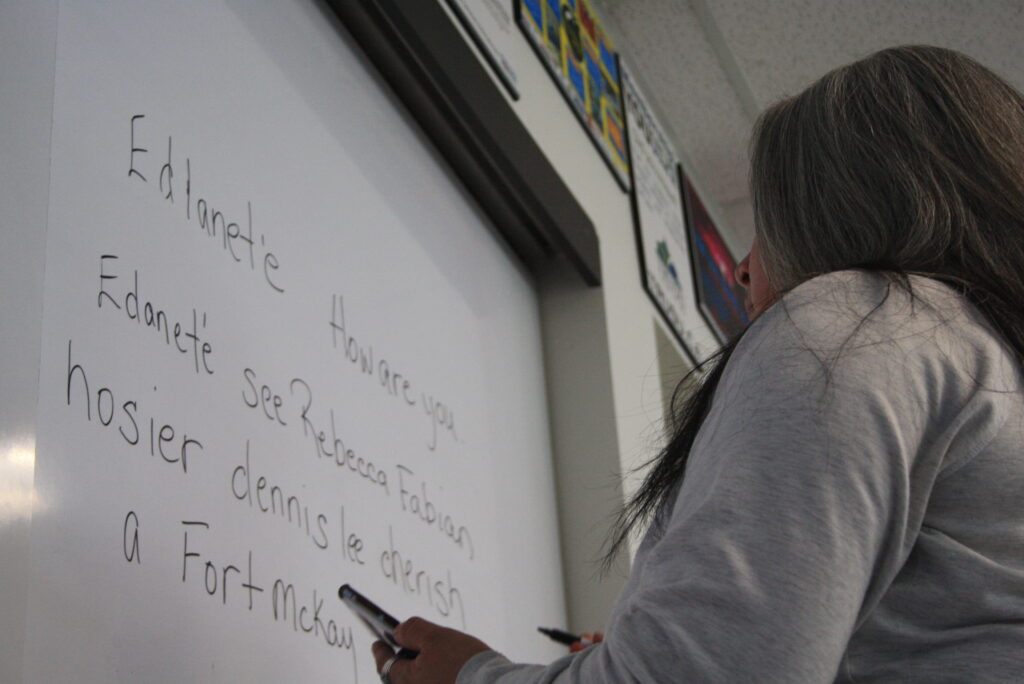 Edlanet'e
How are you
Edanet'e see Rebecca Fabian
hosier dennis lee cherish
a Fort McKay